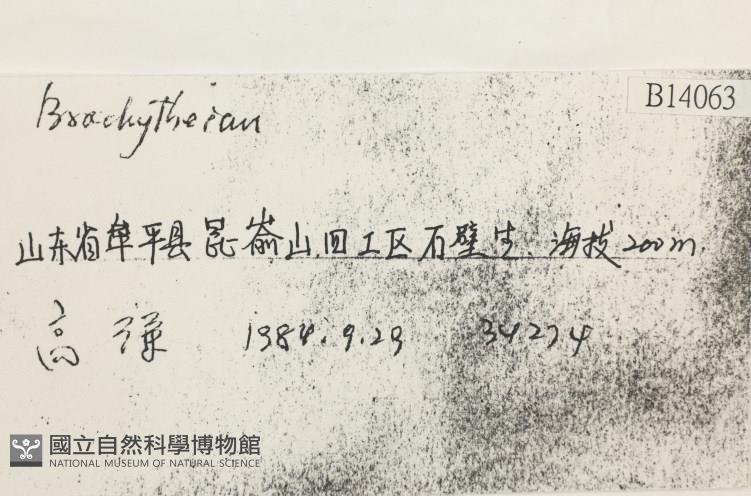 B14063
Brachythecium
山东省牟平县昆嵛山.四工区石壁生.海拔200m.
高谦 1984.9.29 34274
國立自然科學博物館
NATIONAL MUSEUM OF NATURAL SCIENCE